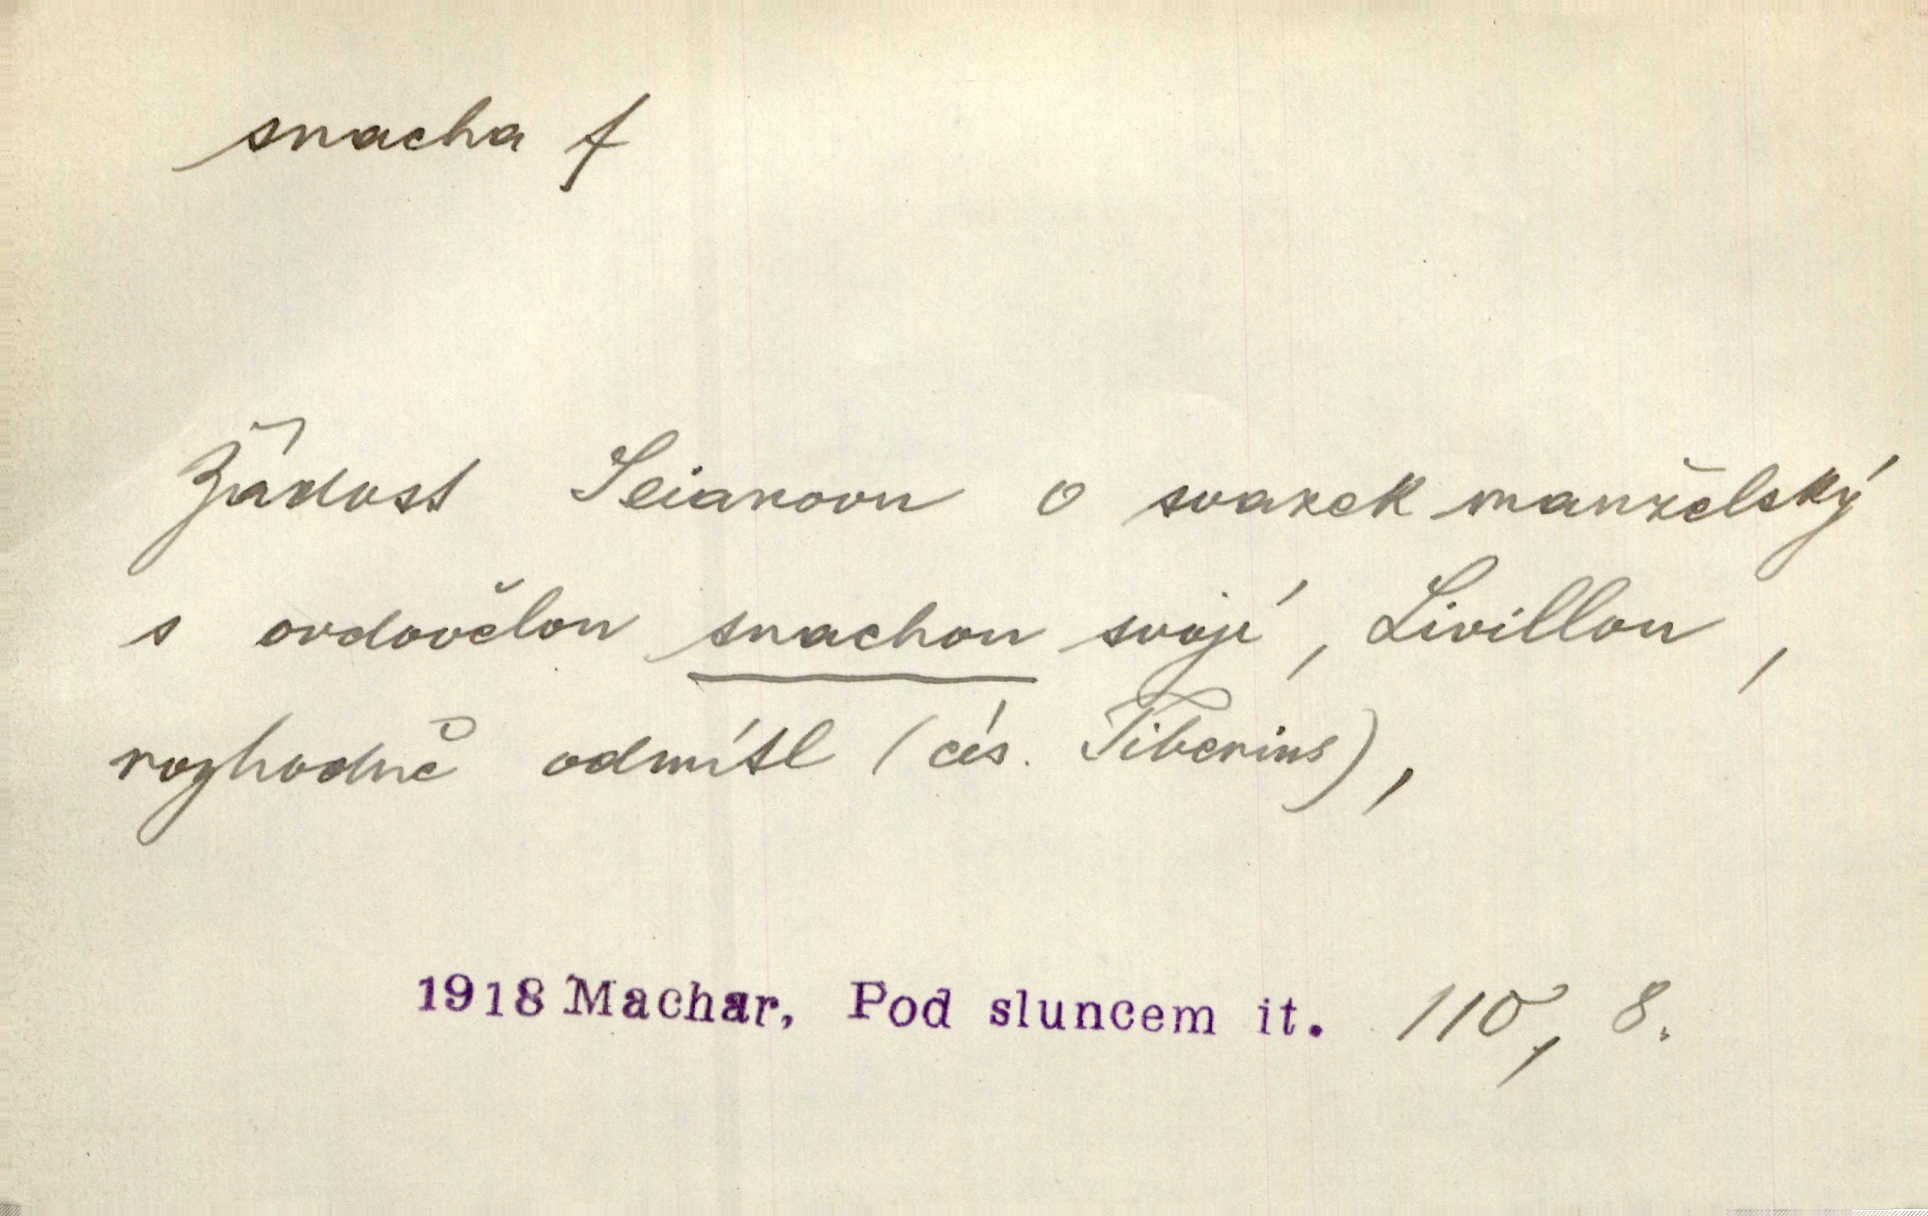 snacha f
Žádost Seianovu o svazek manželský
s ovdovělou snachou svojí, Livillou,
rozhodně odmítl (cís. Tiberius),
1918 Machar, Pod sluncem it. 110, 8.